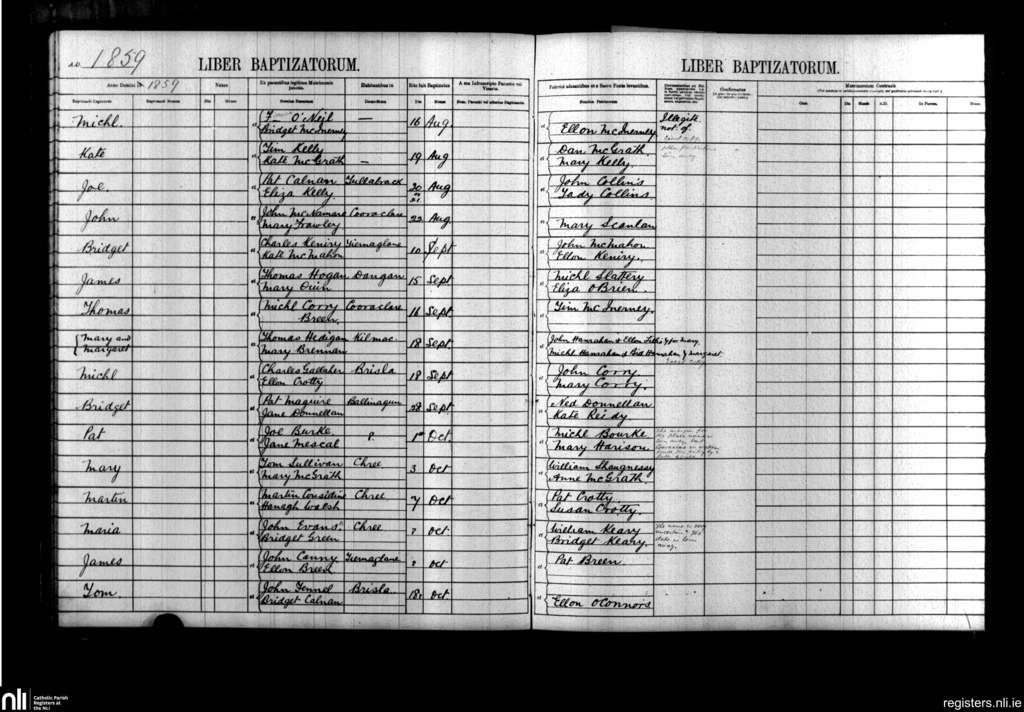 AD. 1859
LIBER BAPTIZATORUM.
LIBER BAPTIZATORUM.
Anno Domini 18 1859
Natus
Ex parentibus legitimo Matrimonio junctis.
Habitantibus in
Rite fuit Baptizatus
A me Infrascripto Parocho vel Vicario.
Confirmatus
Matrimonium Contraxit
Die Mense
Die Mense
Michl. F— O'Neil — 16 Aug. Illegite
Bridget McInerney Ellen McInerney not. of.
Kate Tim Kelly 19 Aug Dan McGrath
Kate McGrath — Mary Kelly.
Joe. Pat Calnan Tullabrack 20 Aug John Collins
Eliza Kelly 21 Collins
John John McNamara Cooraclare 22 Aug
Mary Frawley Mary Scanlan
Bridget Charles Keniry Tiernaglane 10 Sept John McMahon
Kate McMahon Ellen Keniry.
James Thomas Hogan Dangan 15 Sept Michl Slattery
Mary Eliza OBrien.
Thomas Michl Corry Cooraclare 16 Sept. Tim McInerney.
Breen.
{ Mary and Thomas Hedigan Kilmac. 18 Sept. John Hanrahan & Ellen for Mary,
Margaret Mary Brennan Michl Hanrahan & Hanrahan for Margaret
Michl Charles Gallaher Brisla 18 Sept John Corry
Ellen Crotty Mary Corry.
Bridget Pat Maguire Ballinagun 28 Sept Ned Donnellan
Jane Donnellan Kate Reidy
Pat Joe Burke ?. 1st Oct. Michl Bourke
Jane Mescal Mary Harison.
Mary Tom Sullivan Chree 3 Oct William Shaugnessy
Mary McGrath Anne McGrath
Martin Martin Considine Chree 7 Oct Pat Crotty
Hanagh Walsh Susan Crotty.
Maria John Evans. Chree ? Oct. William Keary The name is very
Bridget Green Bridget Keary.
away.
James John Canny Tiernaglane ? Oct Pat Breen
Ellen Breen
Tom John Fennel Brisla 18. Oct
Bridget Calnan Ellen OConnors
nli Catholic Parish
Registers at
the NLI
registers.nli.ie